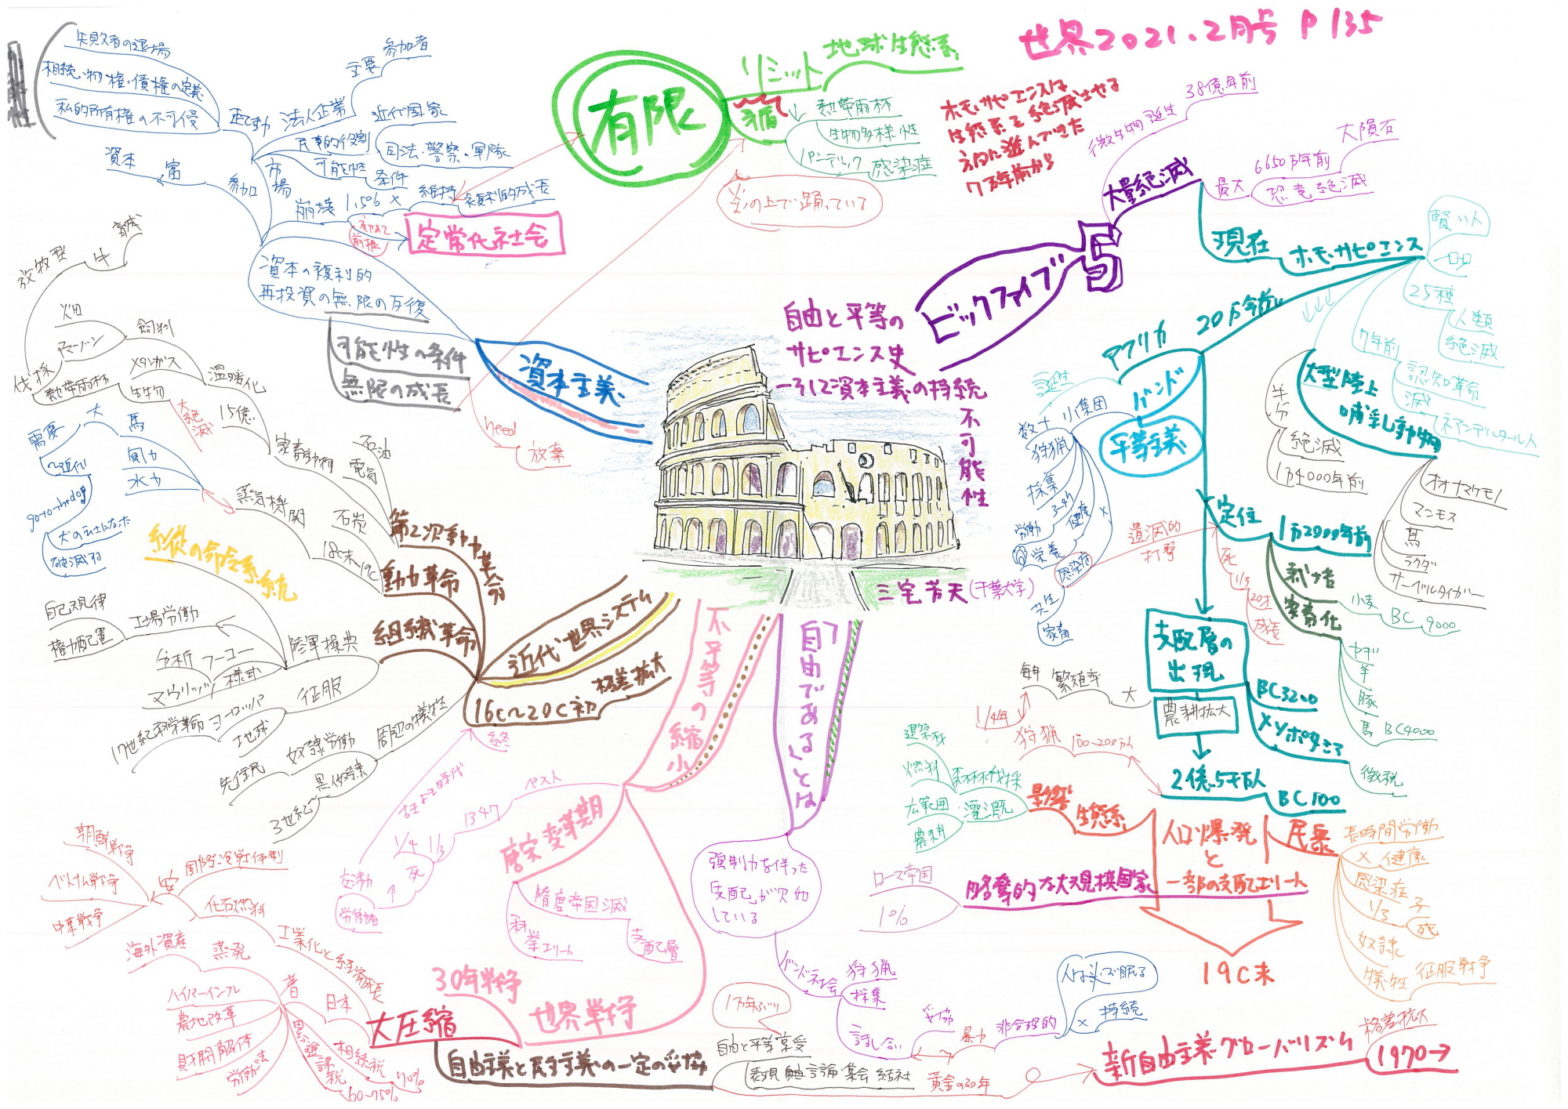 世界2021.2月号 P135
有限
リミット
地球生態系
熱帯雨林
生物多様性
パンデミック
感染症
の上で踊っている
ホモ・サピエンスは
生態系を絶滅させる
方向に進んできた
7万年前から
自由と平等の
サピエンス史
ーそして資本主義の持続
不可能性
三宅芳夫(千葉大学)
ビックファイブ
5
大量絶滅
微生物誕生
38億年前
最大
6650万年前
大隕石
恐竜絶滅
現在
ホモ・サピエンス
賢い人
25種
人類
絶滅
7万年前
認知革命
滅
ネアンデルタール人
大型陸上
哺乳動物
半分
絶滅
1万4000年前
オオナマケモノ
マンモス
馬
ラクダ
サーベルタイガー
20万年前
アフリカ
誕生
バンド
小集団
数十
平等主義
狩猟
採集
労働
3-4h
栄養
健康
感染症
×
共生
家畜
壊滅的
打撃
定住
1万2000年前
死
1/3
20才
成長
栽培
家畜化
小麦
BC 9000
ヤギ
羊
豚
馬 BC4000
支配層の
出現
BC3200
メソポタミア
徴税
農耕拡大
毎年
繁殖率
大
1/4年
狩猟
100〜200万人
2億5千万人
BC100
影響
生態系
森林伐採
建築材
燃料
灌漑
広範囲
農耕
人口爆発
と
一部の支配エリート
民衆
長時間労働
×
健康
感染症
1/3
子
死
奴隷
犠牲
征服戦争
略奪的な大規模国家
ローマ帝国
1%
19C末
新自由主義グローバリズム
格差拡大
1970→
「自由である」とは
強制力を伴った
支配が欠如
している
バンド社会
狩猟
採集
話し合い
妥協
暴力
非合理的
×
持続
枕で眠る
不平等の縮小
唐宋変革期
隋唐帝国滅
支配層
科挙エリート
ペスト
1347
1/3
1/4
死
↑
労働者
世界戦争
30年戦争
大圧縮
自由主義と民主主義の一定の妥協
1万年ぶり
自由と平等享受
表現 自由 言論 集会 結社
黄金の30年
工業化と経済成長
安
国際冷戦体制
朝鮮戦争
ベトナム戦争
中東戦争
化石燃料
日本
蒸発
海外資産
ハイパーインフレ
農地改革
財閥解体
労働法
累進課税
60〜75%
相続税
70%
近代世界システム
16C〜20C初
格差拡大
第2次産業革命
石油
電気
動力革命
石炭
蒸気機関
18末〜19C
馬
風力
水力
組織革命
主従の命令系統
陸軍操典
工場労働
自己規律
権力配置
分析
フーコー
マウリッツ
様式
征服
ヨーロッパ
17世紀科学革命
地球
周辺の犠牲
奴隷労働
先住民
黒人奴隷
3世紀
温暖化
メタンガス
飼料
15億
家畜動物
生物
大絶滅
熱帯雨林
アマゾン
畑
伐採
放牧型
牛
育成
大
需要
〜近代
go to the dog
犬のエサになった
破滅する
資本主義
可能性の条件
無限の成長
need
放棄
資本の複利的
再投資の無限の反復
市場
参加
資本
富
参加者
主要
法人企業
近代国家
民事的役割
司法・警察・軍隊
可能性
条件
維持
複利的成長
崩壊
1.5% ×
前提
定常化社会
失敗者の退場
相続・物権・債権の定義
私的所有権の不可侵